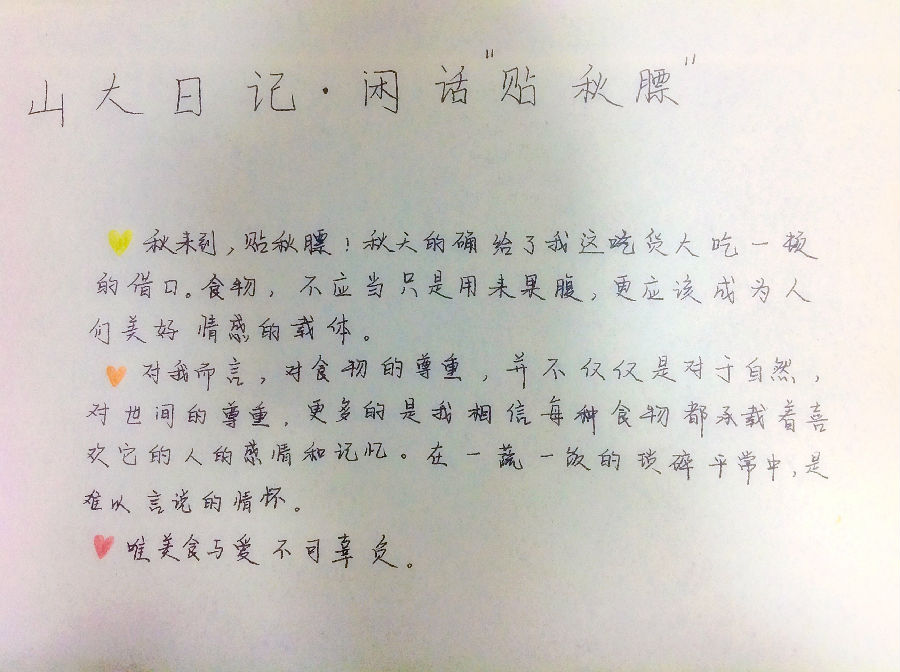 山大日记·闲话"贴秋膘"
秋来到，贴秋膘！秋天的确给了我这吃货大吃一顿
的借口。食物，不应当只是用来果腹，更应该成为人
们美好情感的载体。
对我而言，对食物的尊重，并不仅仅是对于自然，
对世间的尊重，更多的是我相信每种食物都承载着喜
欢它的人的感情和记忆。在一蔬一饭的琐碎平常中，是
难以言说的情怀。
唯美食与爱不可辜负。